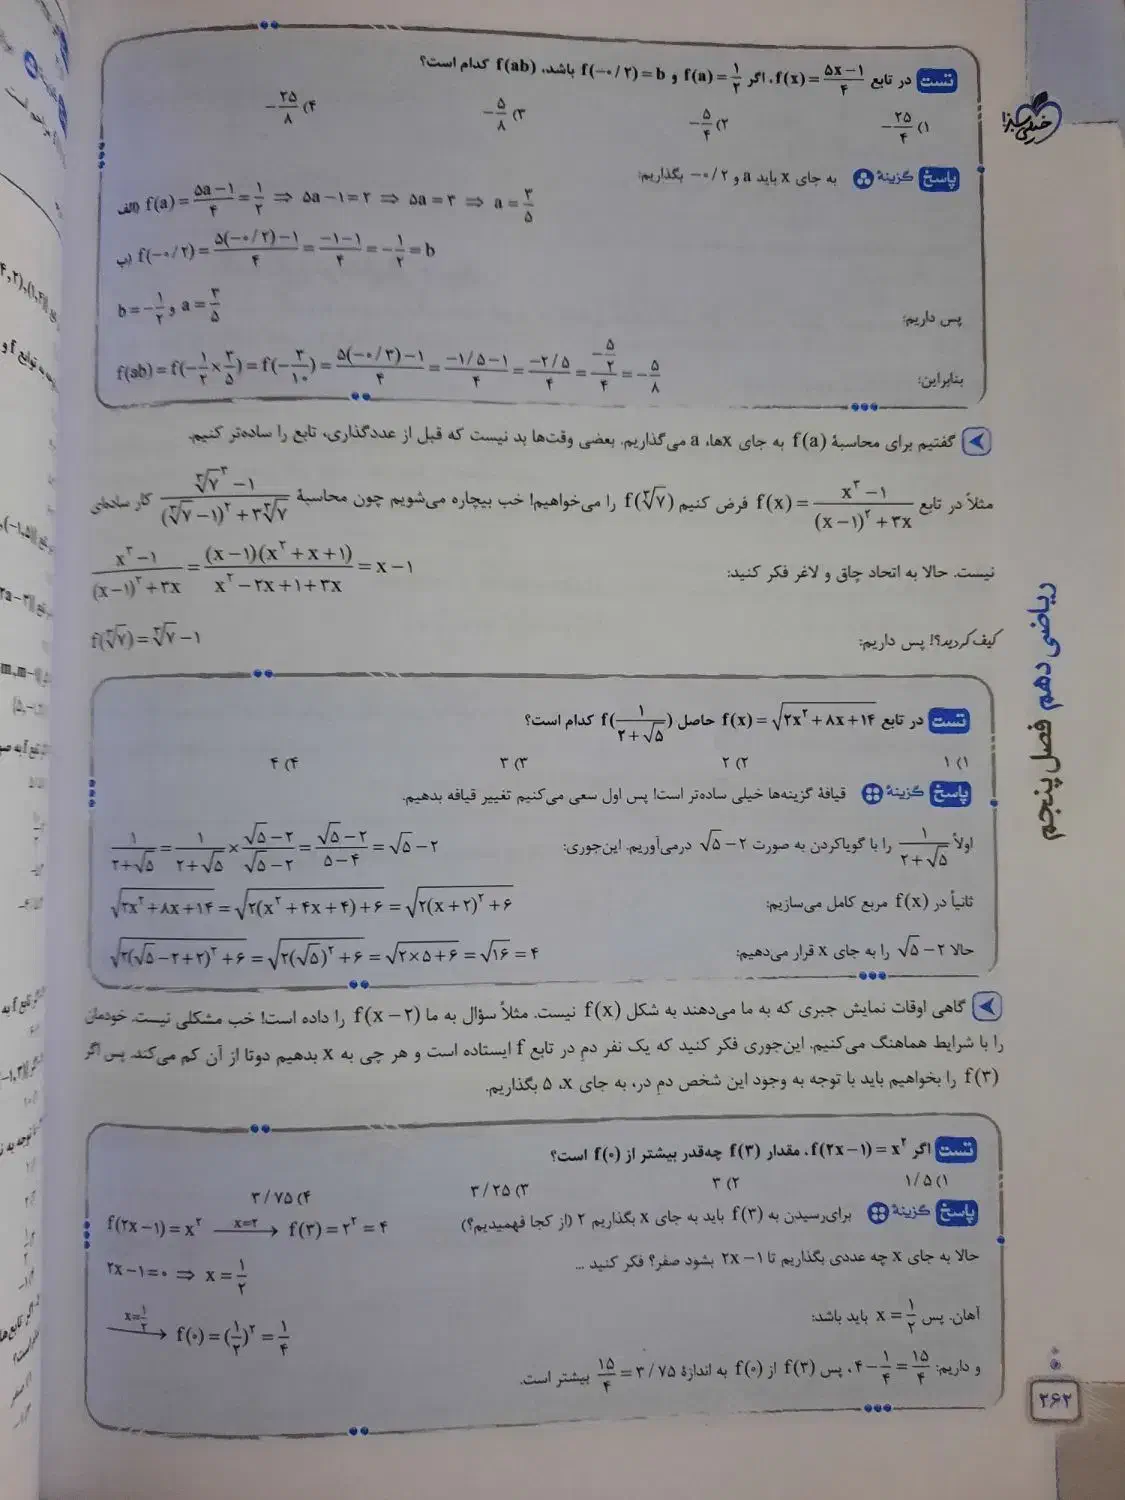 خیلی سبز
تست در تابع f(x) = (۵x − ۱)/۴، اگر f(a) = ۱/۲ و f(−۰/۲) = b باشد، f(ab) کدام است؟
۱) −۲۵/۴ ۲) −۵/۴ ۳) −۵/۸ ۴) −۲۵/۸
پاسخ گزینهٔ به جای x باید a و −۰/۲ بگذاریم:
الف) f(a) = (۵a − ۱)/۴ = ۱/۲ ⇒ ۵a − ۱ = ۲ ⇒ ۵a = ۳ ⇒ a = ۳/۵
ب) f(−۰/۲) = (۵(−۰/۲) − ۱)/۴ = (−۱ − ۱)/۴ = −۱/۲ = b
پس داریم: b = −۱/۲ و a = ۳/۵
بنابراین: f(ab) = f(−۱/۲ × ۳/۵) = f(−۳/۱۰) = (۵(−۰/۳) − ۱)/۴ = (−۱/۵ − ۱)/۴ = (−۲/۵)/۴ = (−۵/۲)/۴ = −۵/۸
گفتیم برای محاسبهٔ f(a) به جای xها، a می‌گذاریم. بعضی وقت‌ها بد نیست که قبل از عددگذاری، تابع را ساده‌تر کنیم.
مثلاً در تابع f(x) = (x³ − ۱)/((x − ۱)² + ۳x) فرض کنیم f(∛۷) را می‌خواهیم! خب بیچاره می‌شویم چون محاسبهٔ (∛۷³ − ۱)/((∛۷ − ۱)² + ۳∛۷) کار ساده‌ای
نیست. حالا به اتحاد چاق و لاغر فکر کنید: (x³ − ۱)/((x − ۱)² + ۳x) = (x − ۱)(x² + x + ۱)/(x² − ۲x + ۱ + ۳x) = x − ۱
کیف کردید؟! پس داریم: f(∛۷) = ∛۷ − ۱
تست در تابع f(x) = √(۲x² + ۸x + ۱۴) حاصل f(۱/(۲ + √۵)) کدام است؟
۱) ۱ ۲) ۲ ۳) ۳ ۴) ۴
پاسخ گزینهٔ قیافهٔ گزینه‌ها خیلی ساده‌تر است! پس اول سعی می‌کنیم تغییر قیافه بدهیم.
اولاً ۱/(۲ + √۵) را با گویاکردن به صورت √۵ − ۲ درمی‌آوریم. این‌جوری: ۱/(۲ + √۵) = ۱/(۲ + √۵) × (√۵ − ۲)/(√۵ − ۲) = (√۵ − ۲)/(۵ − ۴) = √۵ − ۲
ثانیاً در f(x) مربع کامل می‌سازیم: √(۲x² + ۸x + ۱۴) = √(۲(x² + ۴x + ۴) + ۶) = √(۲(x + ۲)² + ۶)
حالا √۵ − ۲ را به جای x قرار می‌دهیم: √(۲(√۵ − ۲ + ۲)² + ۶) = √(۲(√۵)² + ۶) = √(۲ × ۵ + ۶) = √۱۶ = ۴
گاهی اوقات نمایش جبری که به ما می‌دهند به شکل f(x) نیست. مثلاً سؤال به ما f(x − ۲) را داده است! خب مشکلی نیست. خودمان
را با شرایط هماهنگ می‌کنیم. این‌جوری فکر کنید که یک نفر دم در تابع f ایستاده است و هر چی به x بدهیم دوتا از آن کم می‌کند. پس اگر
f(۳) را بخواهیم باید با توجه به وجود این شخص دم در، به جای x، ۵ بگذاریم.
تست اگر f(۲x − ۱) = x²، مقدار f(۳) چه‌قدر بیشتر از f(۰) است؟
۱) ۱/۵ ۲) ۳ ۳) ۳/۲۵ ۴) ۳/۷۵
پاسخ گزینهٔ برای رسیدن به f(۳) باید به جای x بگذاریم ۲ (از کجا فهمیدیم؟) f(۲x − ۱) = x² —x=۲→ f(۳) = ۲² = ۴
حالا به جای x چه عددی بگذاریم تا ۲x − ۱ بشود صفر؟ فکر کنید ... ۲x − ۱ = ۰ ⇒ x = ۱/۲
آهان. پس x = ۱/۲ باید باشد: —x=۱/۲→ f(۰) = (۱/۲)² = ۱/۴
و داریم: ۴ − ۱/۴ = ۱۵/۴، پس f(۳) از f(۰) به اندازهٔ ۱۵/۴ = ۳/۷۵ بیشتر است.
ریاضی دهم فصل پنجم
۲۶۲